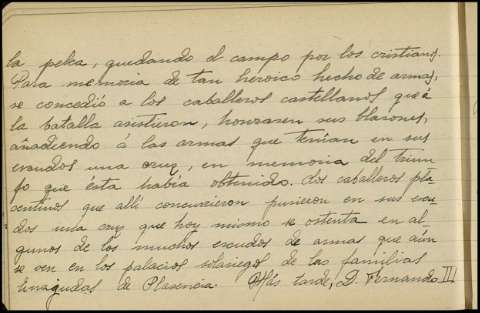 la pelea, quedando el campo por los cristianos.
Para memoria de tan heroico hecho de armas,
se concedió á los caballeros castellanos que á
la batalla asistieron, honrasen sus blasones,
añadiendo á las armas que tenían en sus
escudos una cruz, en memoria del triun
fo que ésta había obtenido. Los caballeros pla
sentinos que allí concurrieron pusieron en sus escu
dos una cruz que hoy mismo se ostenta en al
gunos de los muchos escudos de armas que aún
se ven en los palacios solariegos de las familias
linajudas de Plasencia. Más tarde, D. Fernando III